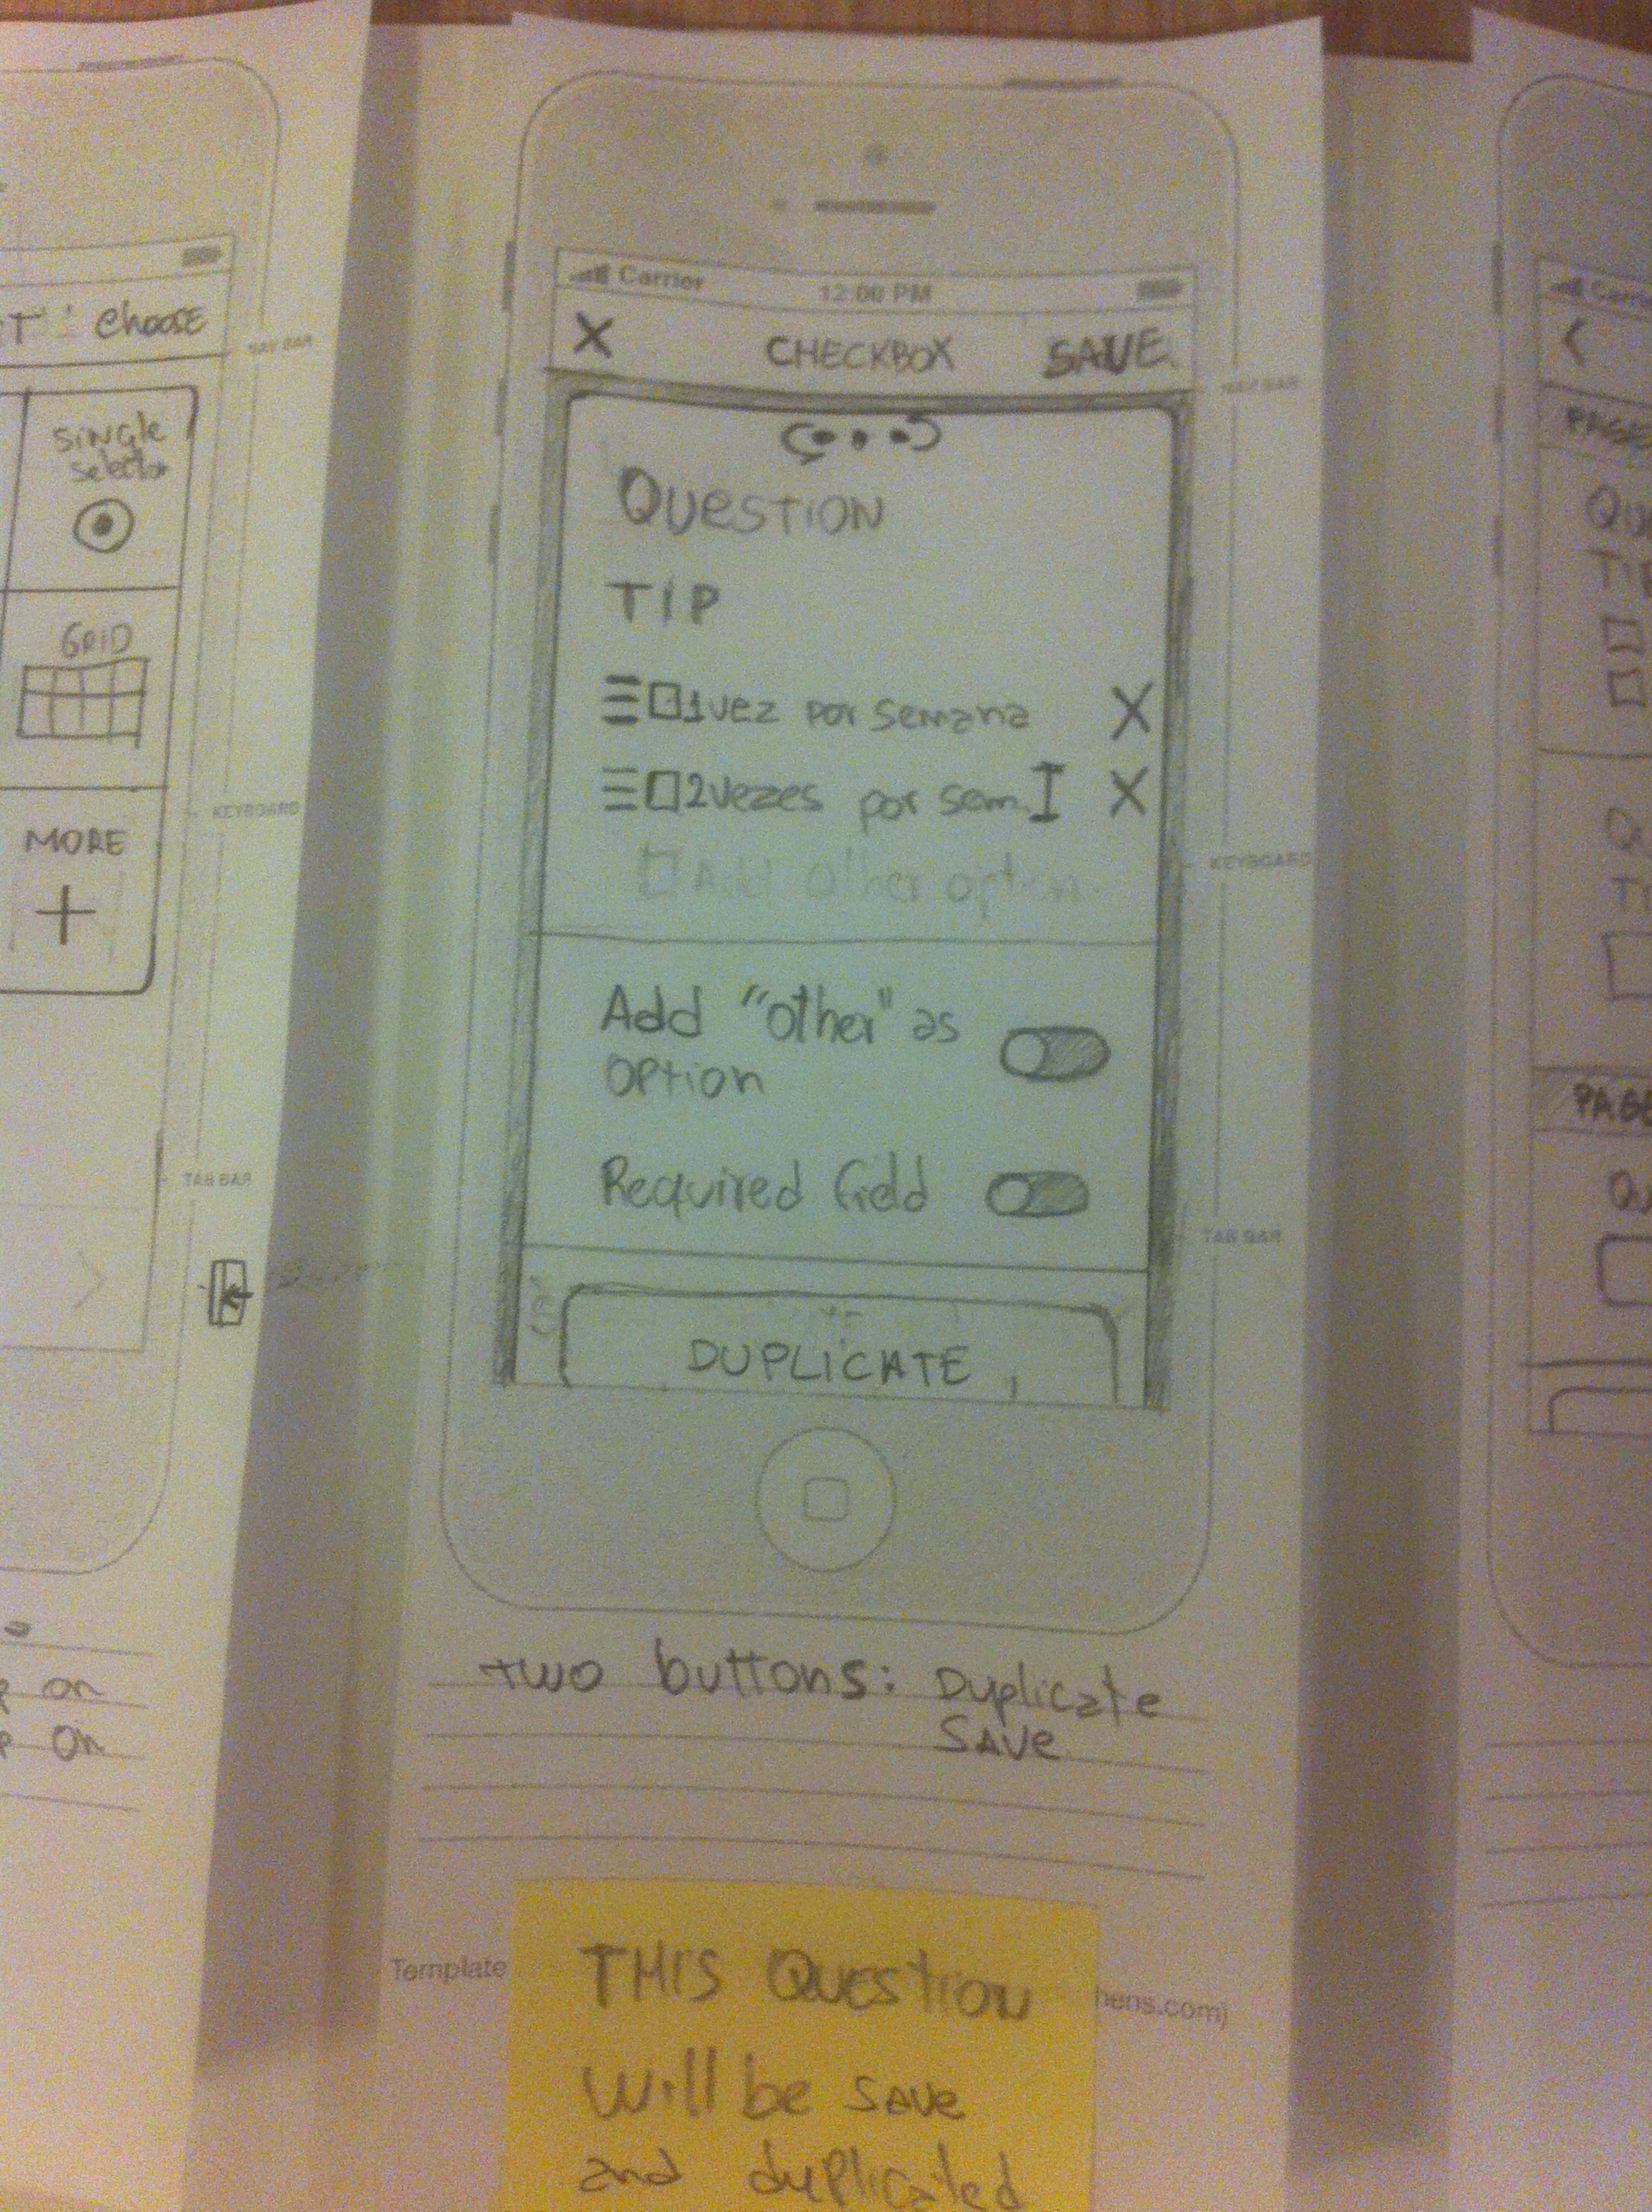 Choose
NAV BAR
single
selector
GRID
KEYBOARD
MORE
TAB BAR
on
on
Carrier
12:00 PM
X CHECKBOX SAVE
NAV BAR
QUESTION
TIP
1 vez por semana X
2 vezes por sem. X
Add other option
KEYBOARD
Add "other" as
option
Required field
TAB BAR
DUPLICATE
two buttons: Duplicate
SAVE
Template
hens.com)
THIS QUESTION
Will be save
and duplicated
PAGE
TIP
PAGE